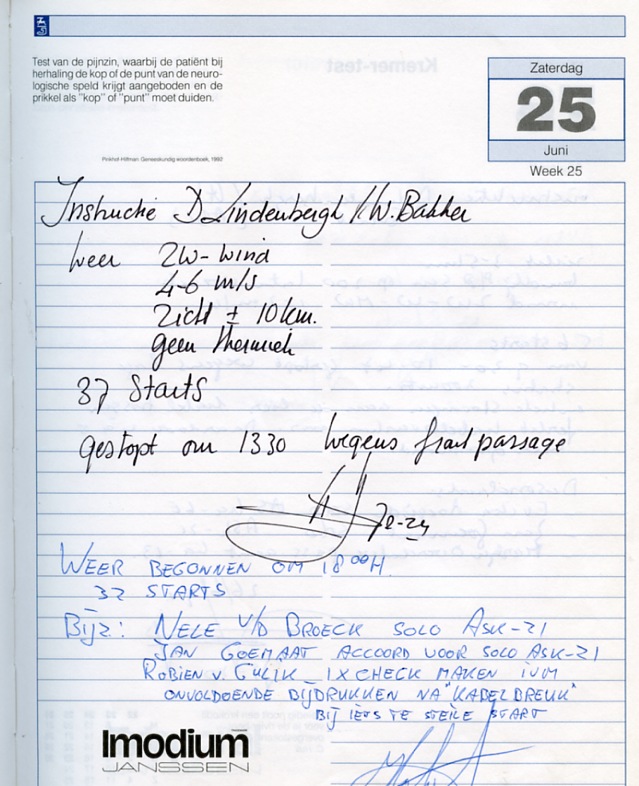 Test van de pijnzin, waarbij de patiënt bij
herhaling de kop of de punt van de neuro-
logische speld krijgt aangeboden en de
prikkel als "kop" of "punt" moet duiden.
Pinkhof-Hilfman Geneeskundig woordenboek, 1992
Kremer-test
Zaterdag
25
Juni
Week 25
Instructie D Lindenbergh / W. Bakker
weer ZW-wind
4-6 m/s
Zicht ± 10 km.
geen thermiek
37 Starts
gestopt om 1330 wegens front passage
WEER BEGONNEN OM 18 00 H.
32 STARTS
BIJZ: NELE V/D BROECK SOLO ASK-21
JAN GOEMAAT ACCOORD VOOR SOLO ASK-21
ROBIEN V. GULIK 1X CHECK MAKEN IVM
ONVOLDOENDE BIJDRUKKEN NA "KABELBREUK"
BIJ IETS TE STEILE START
Imodium
JANSSEN